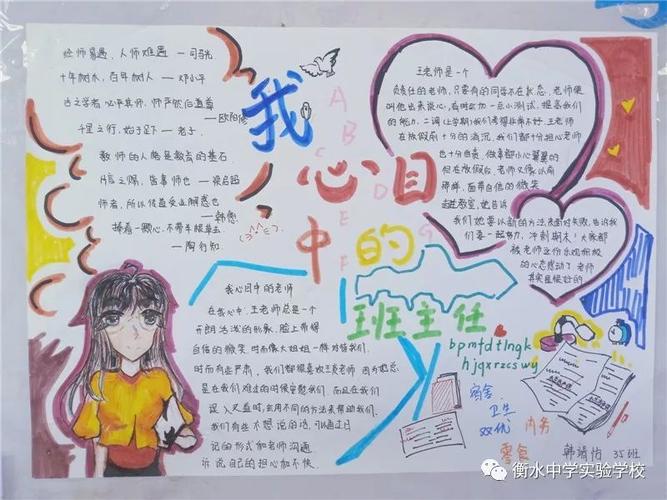 经师易遇，人师难遇 — 司马光
十年树木，百年树人 — 邓小平
古之学者必严其师，师严然后道尊
— 欧阳修
千里之行，始于足下 — 老子
教师的人格是教育的基石
片言之赐，皆事师也 — 梁启超
师者，所以传道受业解惑也
— 韩愈
捧着一颗心，不带半根草去
— 陶行知
我
心目
中的
班主任
A
B
C
D
E
F
G
王老师是一个
负责任的老师，只要有的同学不在状态，老师便
叫他出来谈心，有时也加一点小测试，提高我们
的能力，二调上学期我们考得非常不好，王老师
在放假前十分的消沉，我们都十分担心老师
也十分自责，做事都小心翼翼的
但在放假后，老师又像从前
那样，面带自信的微笑
走进教室，她告诉
我们她要以新的方法来面对失败，告诉我
们要一起努力，冲刺期末！大家都
被老师这份乐观积极
的心态感动了，老师
其实是挺好的
我心目中的老师
在我心中，王老师总是一个
开朗活泼的形象，脸上带着
自信的微笑，时而像大姐姐一样对待我们，
时而有些严肃，我们都很喜欢王老师
是在我们难过的时候安慰我们，而且在我们
误入歧途时，会用不同的方法来帮助我们，
我们有些不想说的话，可以通过日
记的形式和老师沟通，
诉说自己的担心和不快。
bpmfdtlngk
hjqxrzcswy
宿舍
卫生
双优
内务
零食
韩靖怡 35班
衡水中学实验学校